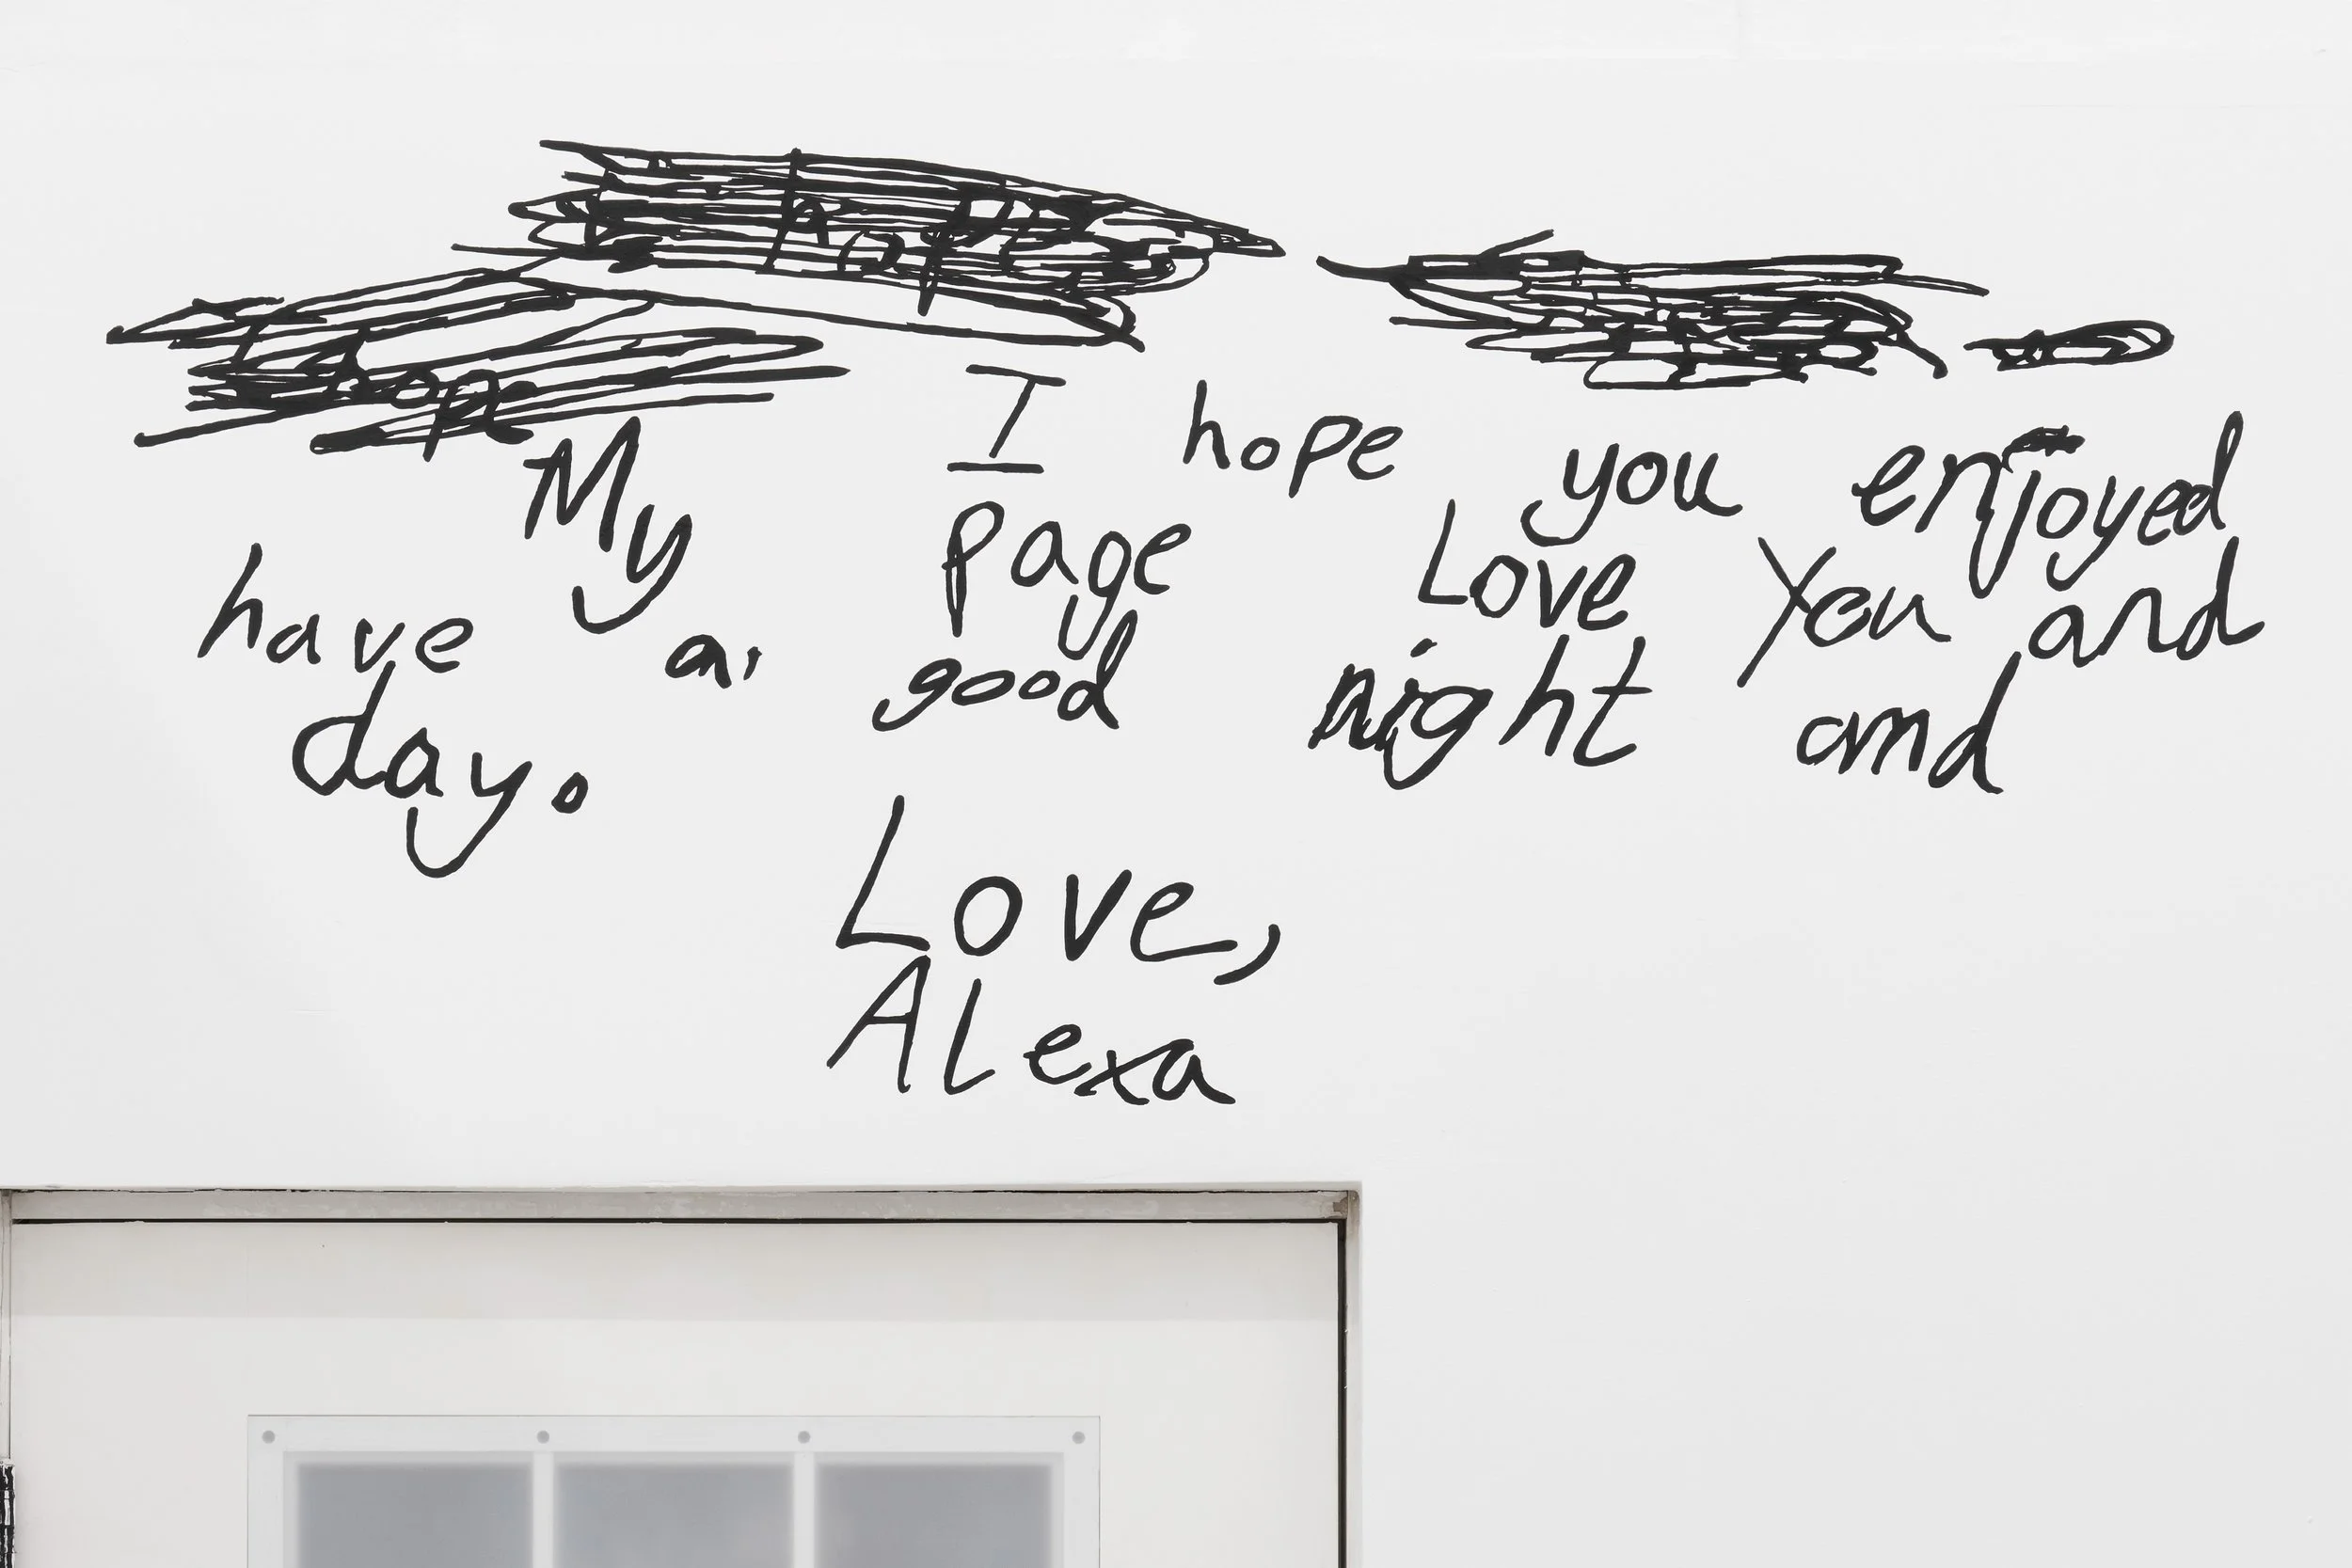 hope
hope
I hope you enjoyed
My page Love You and
have a good night and
day.
Love,
ALexa